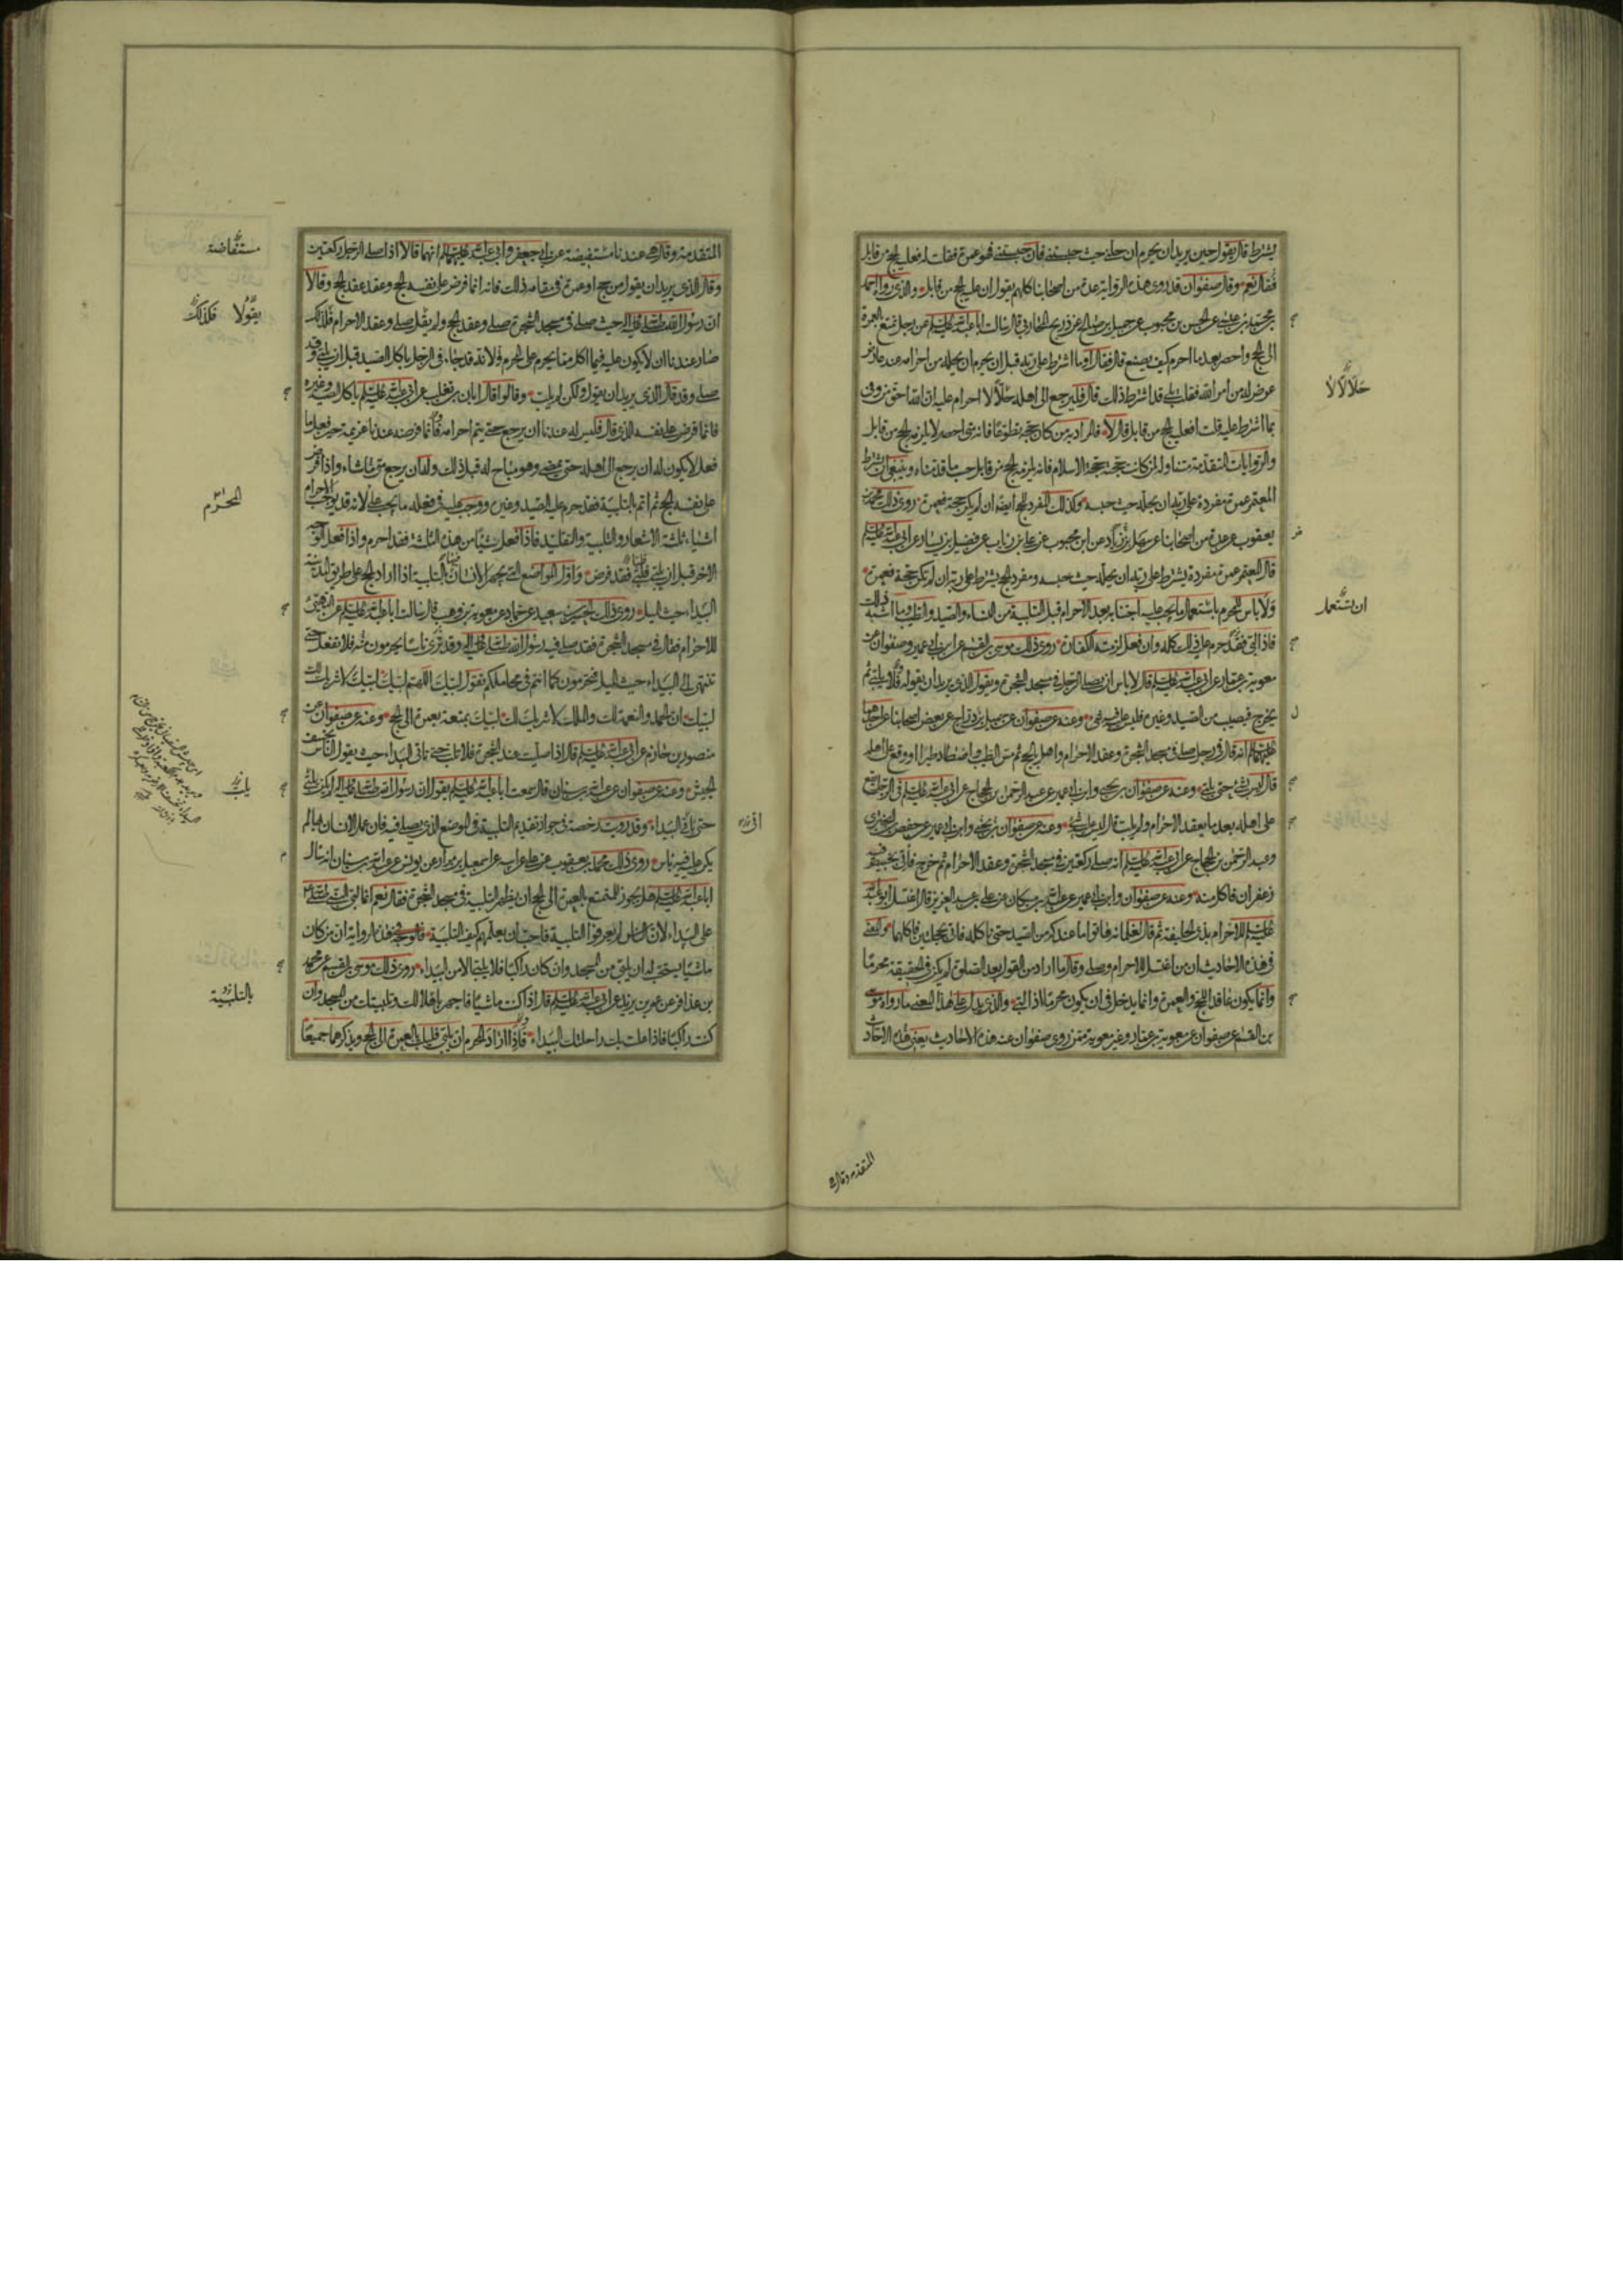 يشترط قال يقول حين يريد ان يحرم ان حلني حيث حبستني فان حبستني فهو عمرة فقلت له فعليه الحج من قابل
فقال نعم وقال صفوان قد روى هذه الرواية عدة من اصحابنا كلهم يقول ان عليه الحج من قابل والذي رواه احمد
بن محمد بن عيسى عن الحسن بن محبوب عن جميل بن صالح عن ذريح المحاربي قال سالت ابا عبد الله عليه السلم عن رجل تمتع بالعمرة
الى الحج واحصر بعد ما احرم كيف يصنع قال فقال او ما اشترط على ربه قبل ان يحرم ان يحله من احرامه عند عارض
عرض له من امر الله فقلت بلى قد اشترط ذلك قال فليرجع الى اهله حلالا لا احرام عليه ان الله احق من وفى
بما اشترط عليه قلت افعليه الحج من قابل قال لا فالمراد به من كان حجته تطوعا فانه متى احصر لا يلزمه الحج من قابل
والروايات المتقدمة متناولة لمن كانت حجته حجة الاسلام فانه يلزمه الحج من قابل حسب ما قدمناه وينبغي ان يشترط
المعتمر عمرة مفردة على ربه ان يحله حيث حبسه وكذلك المفرد للحج ايضا ان لم يكن حجة فعمرة روى ذلك محمد بن
يعقوب عن عدة من اصحابنا عن سهل بن زياد عن ابن محبوب عن علي بن رئاب عن فضيل بن يسار عن ابي عبد الله عليه السلم
قال المعتمر عمرة مفردة يشترط على ربه ان يحله حيث حبسه ومفرد الحج يشترط على ربه ان لم تكن حجة فعمرة
ولا باس للمحرم باستعمال ما يجب عليه اجتنابه بعد الاحرام قبل التلبية من النساء والصيد والطيب وما اشبه ذلك
فاذا لبى فقد حرم عليه ذلك كله وان فعل لزمته الكفارة روى ذلك موسى بن القسم عن ابن ابي عمير وصفوان عن
معوية بن عمار عن ابي عبد الله عليه السلم قال لا باس ان يصلي الرجل في مسجد الشجرة ويقول الذي يريد ان يقوله ولا يلبي ثم
يخرج فيصيب من الصيد وغيره فليس عليه فيه شيء وعنه عن صفوان عن جميل بن دراج عن بعض اصحابنا عن احدهما
عليهما السلم انه قال في رجل صلى في مسجد الشجرة وعقد الاحرام واهل بالحج ثم مس الطيب واصطاد طيرا او وقع على اهله
قال ليس بشيء حتى يلبي وعنه عن صفوان بن يحيى وابن ابي عمير عن عبد الرحمن بن الحجاج عن ابي عبد الله عليه السلم في الرجل يقع
على اهله بعد ما يعقد الاحرام ولم يلب قال ليس عليه شيء وعنه عن صفوان بن يحيى وابن ابي عمير عن حفص بن البختري
وعبد الرحمن بن الحجاج عن ابي عبد الله عليه السلم انه صلى ركعتين في مسجد الشجرة وعقد الاحرام ثم خرج فاتى بخبيص فيه
زعفران فاكل منه وعنه عن صفوان وابن ابي عمير عن عبد الله بن مسكان عن علي بن عبد العزيز قال اغتسل ابو عبد الله
عليه السلم للاحرام بذي الحليفة ثم قال لغلمانه هاتوا ما عندكم من الصيد حتى ناكله فاتي بحجلتين فاكلهما والمعنى
في هذه الاحاديث ان من اغتسل للاحرام وصلى وقال ما اراد من القول بعد الصلوة لم يكن في الحقيقة محرما
وانما يكون عاقدا للحج والعمرة وانما يدخل في ان يكون محرما اذا لبى والذي يدل على هذا المعنى ما رواه موسى
بن القسم عن صفوان عن معوية بن عمار وغير معوية ممن روى صفوان عنه هذه الاحاديث يعني هذه الاحاديث
حلالا لا
ان يستعمل
المتقدمة وقال
المتقدمة وقال هي عندنا مستفيضة عن ابي جعفر وابي عبد الله عليهما السلم انهما قالا اذا صلى الرجل ركعتين
وقال الذي يريد ان يقول من حج او عمرة في مقامه ذلك فانه انما فرض على نفسه الحج وعقد عقد الحج وقالا
ان رسول الله صلى الله عليه واله حيث صلى في مسجد الشجرة صلى وعقد الحج ولم يقل صلى وعقد الاحرام فلذلك
صار عندنا ان لا يكون عليه فيما اكل مما يحرم على المحرم ولانه قد جاء في الرجل ياكل الصيد قبل ان يلبي وقد
صلى وقد قال الذي يريد ان يقول ولكن لم يلب وقالوا قال ابان بن تغلب عن ابي عبد الله عليه السلم ياكل الصيد وغيره
فانما فرض على نفسه الذي قال فليس له عندنا ان يرجع حتى يتم احرامه فانما فرضه عندنا عزيمة حين فعل ما
فعل لا يكون له ان يرجع الى اهله حتى يمضي وهو مباح له قبل ذلك وله ان يرجع متى شاء واذا فرض
على نفسه الحج ثم اتم بالتلبية فقد حرم عليه الصيد وغيره ووجب عليه في فعله ما يجب على المحرم لانه قد يوجب الاحرام
اشياء ثلثة الاشعار والتلبية والتقليد فاذا فعل شيئا من هذه الثلثة فقد احرم واذا فعل الوجه
الاخر قبل ان يلبي فلبى فقد فرض واول المواضع التي يجهر الانسان فيها بالتلبية اذا اراد الحج على طريق المدينة
البيداء حيث الميل روى ذلك الحسين بن سعيد عن حماد عن معوية بن وهب قال سالت ابا عبد الله عليه السلم عن التهيؤ
للاحرام فقال في مسجد الشجرة فقد صلى فيه رسول الله صلى الله عليه واله وقد ترى ناسا يحرمون منه فلا تفعل حتى
تنتهي الى البيداء حيث الميل فتحرمون كما انتم في محاملكم تقول لبيك اللهم لبيك لبيك لا شريك لك
لبيك ان الحمد والنعمة لك والملك لا شريك لك لبيك بمتعة بعمرة الى الحج وعنه عن صفوان عن
منصور بن حازم عن ابي عبد الله عليه السلم قال اذا صليت عند الشجرة فلا تلب حتى تاتي البيداء حيث يقول الناس يخسف
بالجيش وعنه عن صفوان عن عبد الله بن سنان قال سمعت ابا عبد الله عليه السلم يقول ان رسول الله صلى الله عليه واله لم يكن يلبي
حتى ياتي البيداء وقد رويت رخصة في جواز تقديم التلبية في الموضع الذي يصلي فيه فان عمل الانسان بها لم
يكن عليه فيه باس روى ذلك محمد بن يعقوب عن علي عن ابيه عن اسمعيل بن مرار عن يونس عن عبد الله بن سنان انه سال
ابا عبد الله عليه السلم هل يجوز للمتمتع بالعمرة الى الحج ان يظهر التلبية في مسجد الشجرة فقال نعم انما لبى النبي صلى الله عليه واله
على البيداء لان الناس لم يعرفوا التلبية فاحب ان يعلمهم كيف التلبية والوجه في هذه الرواية ان من كان
ماشيا يستحب له ان يلبي من المسجد وان كان راكبا فلا يلبي الا من البيداء روى ذلك موسى بن القسم عن محمد
بن عذافر عن عمر بن يزيد عن ابي عبد الله عليه السلم قال اذا كنت ماشيا فاجهر باهلالك وتلبيتك من المسجد وان
كنت راكبا فاذا علت بك راحلتك البيداء فاذا اراد المحرم ان يلبي فليلب بالعمرة الى الحج ويذكرهما جميعا
مستفاضة
يقولا فلذلك
المحرم
يلب
بالتلبية